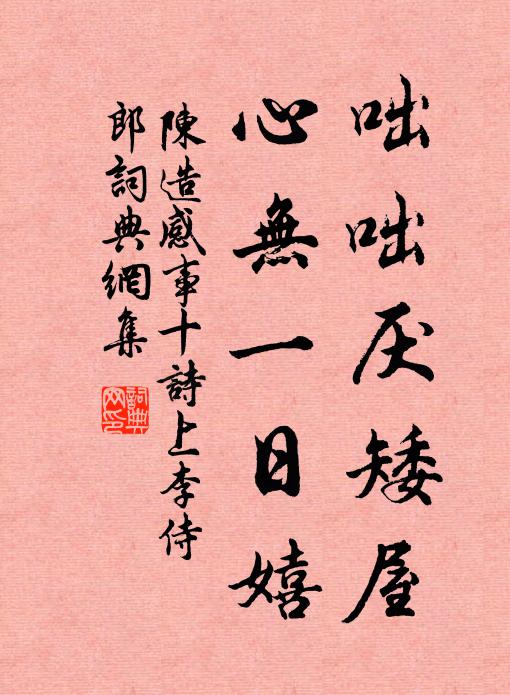 咄咄厌矮屋
心無一日嬉
陳造感事十詩上李侍
郎詞典網集
詞典网印